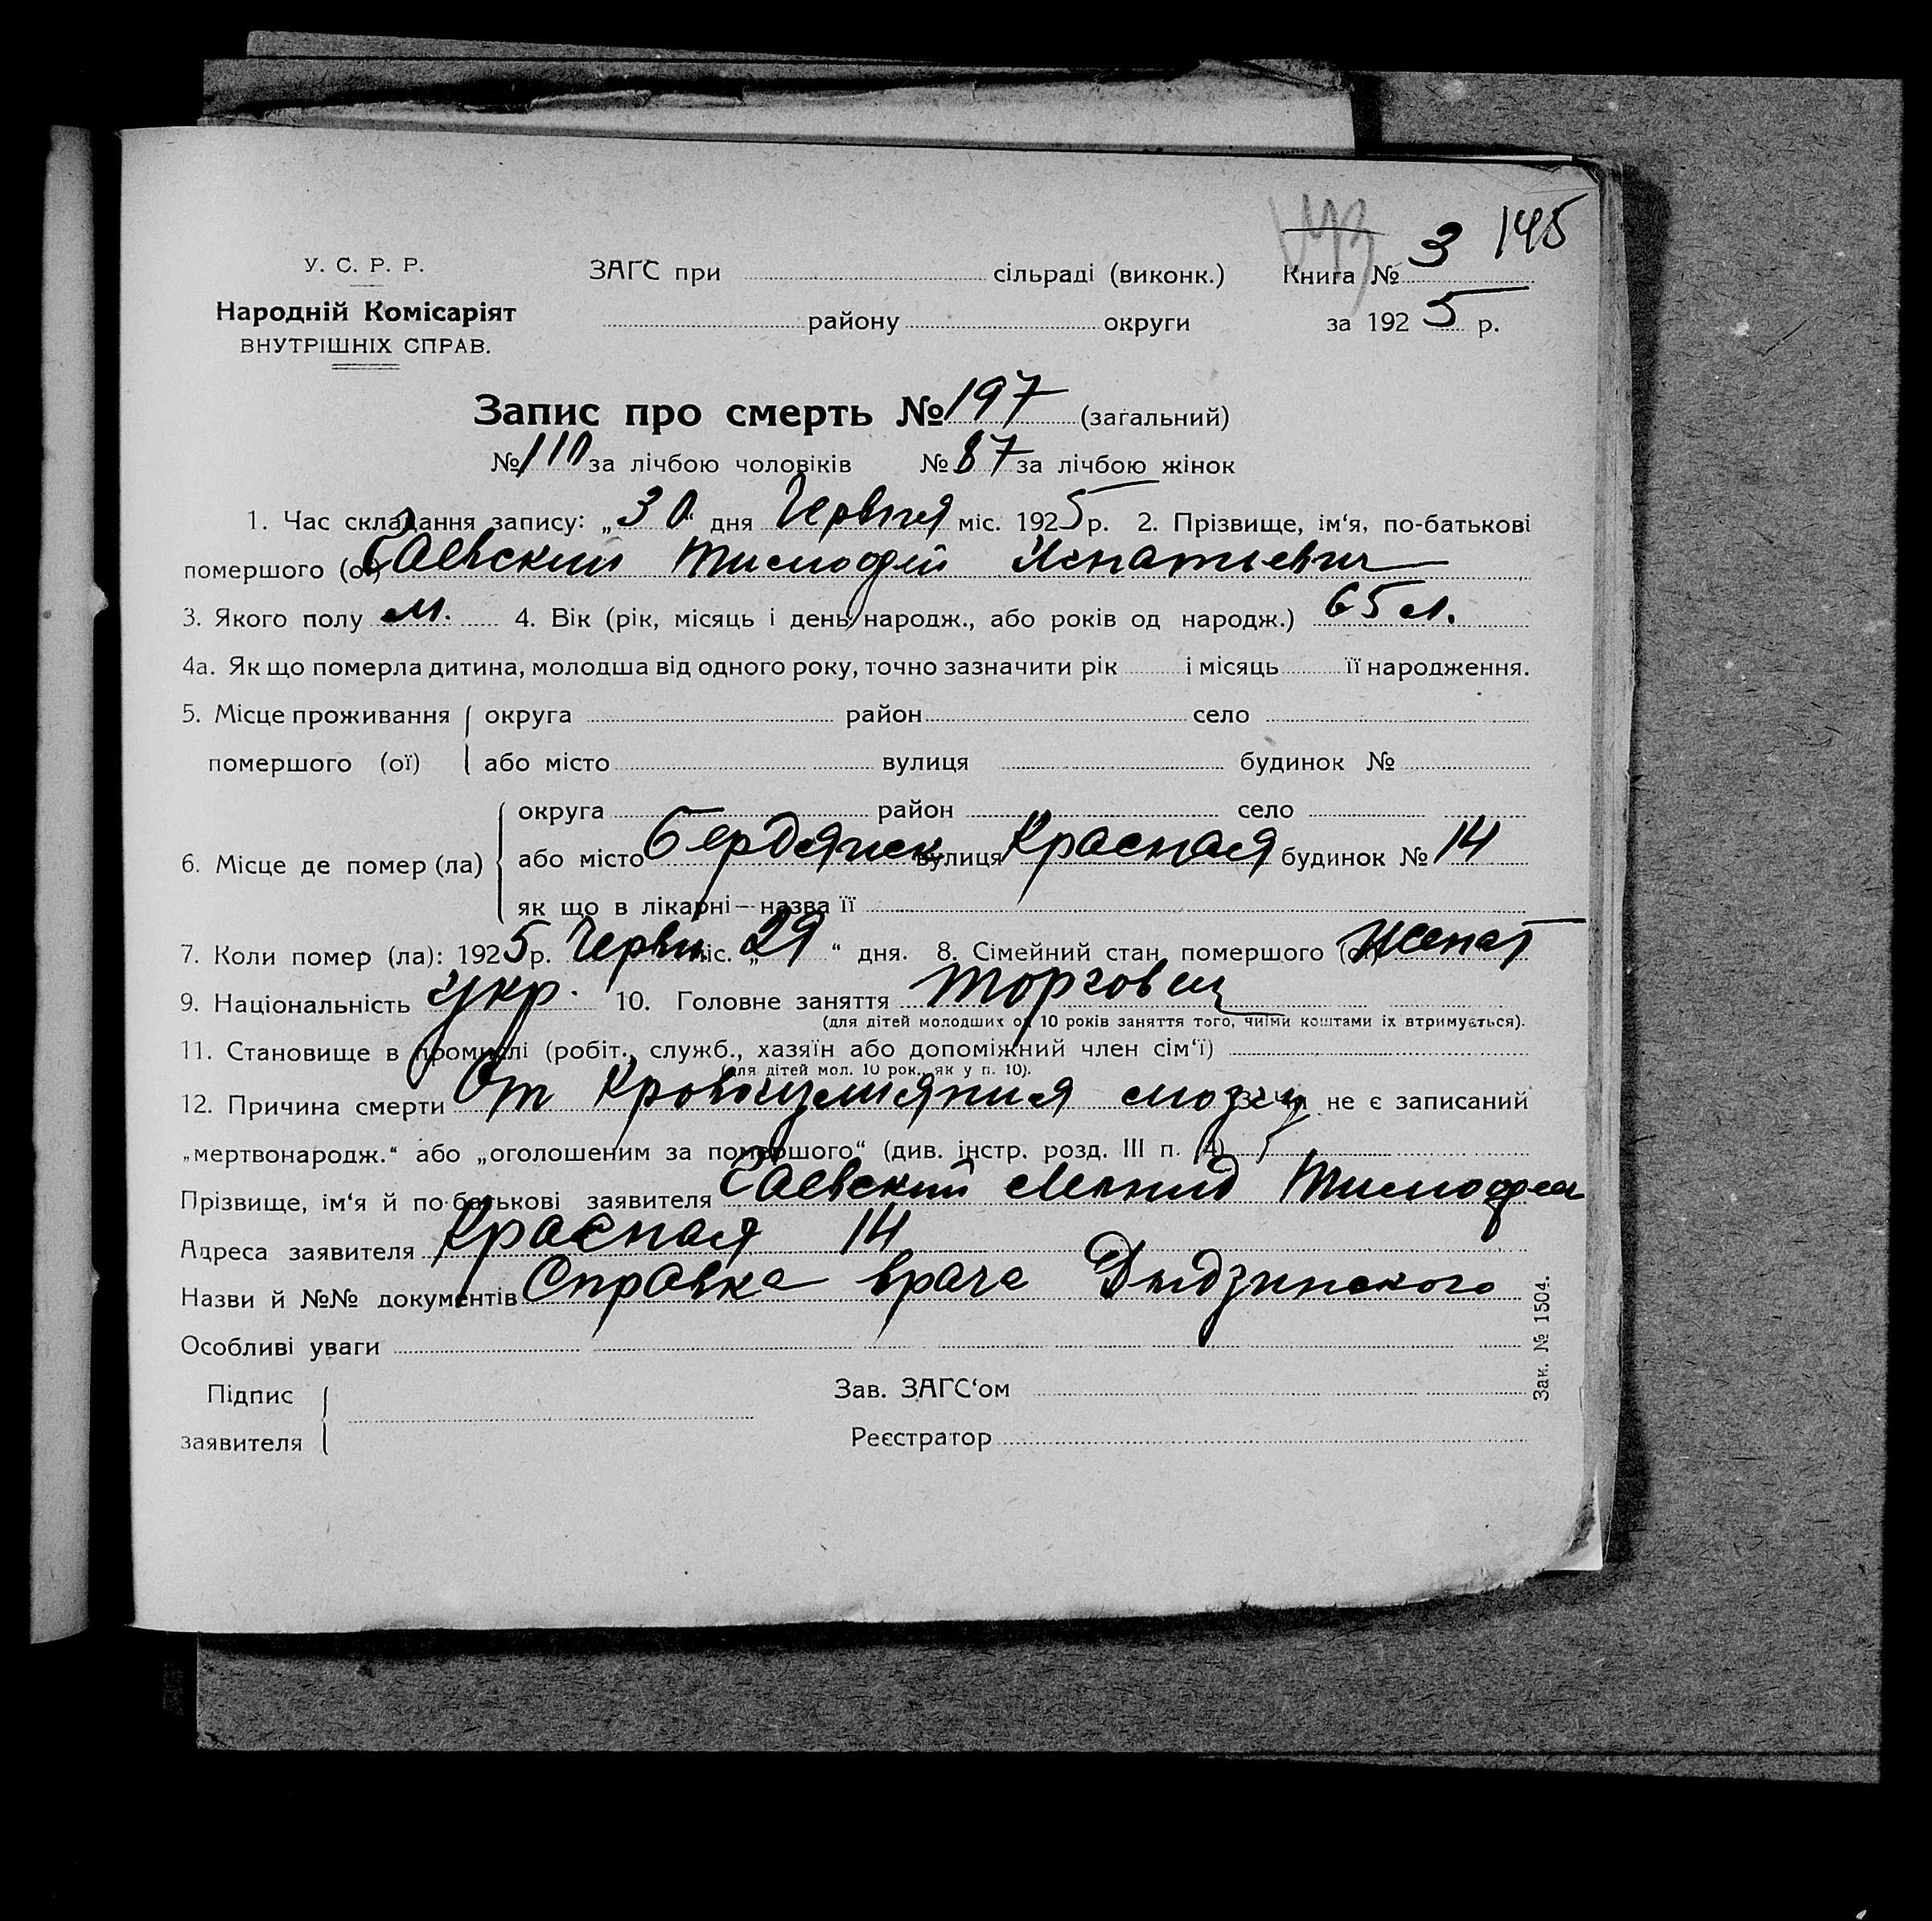 143
3 145
У. С. Р. Р.
ЗАГС при сільраді (виконк.) Книга № 3
Народній Комісаріят
району округи за 1925 р.
ВНУТРІШНІХ СПРАВ.
Запис про смерть № 197 (загальний)
№ 110 за лічбою чоловіків № 87 за лічбою жінок
1. Час складання запису: „30“ дня Червня міс. 1925 р. 2. Прізвище, ім‘я, по-батькові
помершого (ої) Саевский Тимофей Игнатьевич
3. Якого полу м. 4. Вік (рік, місяць і день народж., або років од народж.) 65 л.
4а. Як що померла дитина, молодша від одного року, точно зазначити рік і місяць її народження.
5. Місце проживання округа район село
помершого (ої) або місто вулиця будинок №
округа район село
6. Місце де помер (ла) або місто Бердянск вулиця Красная будинок № 14
як що в лікарні — назва її
7. Коли помер (ла): 1925 р. Червн міс. „29“ дня. 8. Сімейний стан помершого (ої) женат
9. Національність укр. 10. Головне заняття торговец
(для дітей молодших од 10 років заняття того, чиїми коштами їх втримується).
11. Становище в промислі (робіт., служб., хазяїн або допоміжний член сім‘ї)
(для дітей мол. 10 рок., як у п. 10).
12. Причина смерти От кровоизлияния мозгу 13. Чи не є записаний
„мертвонародж.“ або „оголошеним за помершого“ (див. інстр. розд. III п. 4)
Прізвище, ім‘я й по-батькові заявителя Саевский Тимофеев
Адреса заявителя Красная 14
Назви й №№ документів Справка врача Дидзинского
Особливі уваги
Підпис Зав. ЗАГС‘ом
заявителя Реєстратор
Зак. № 1504.